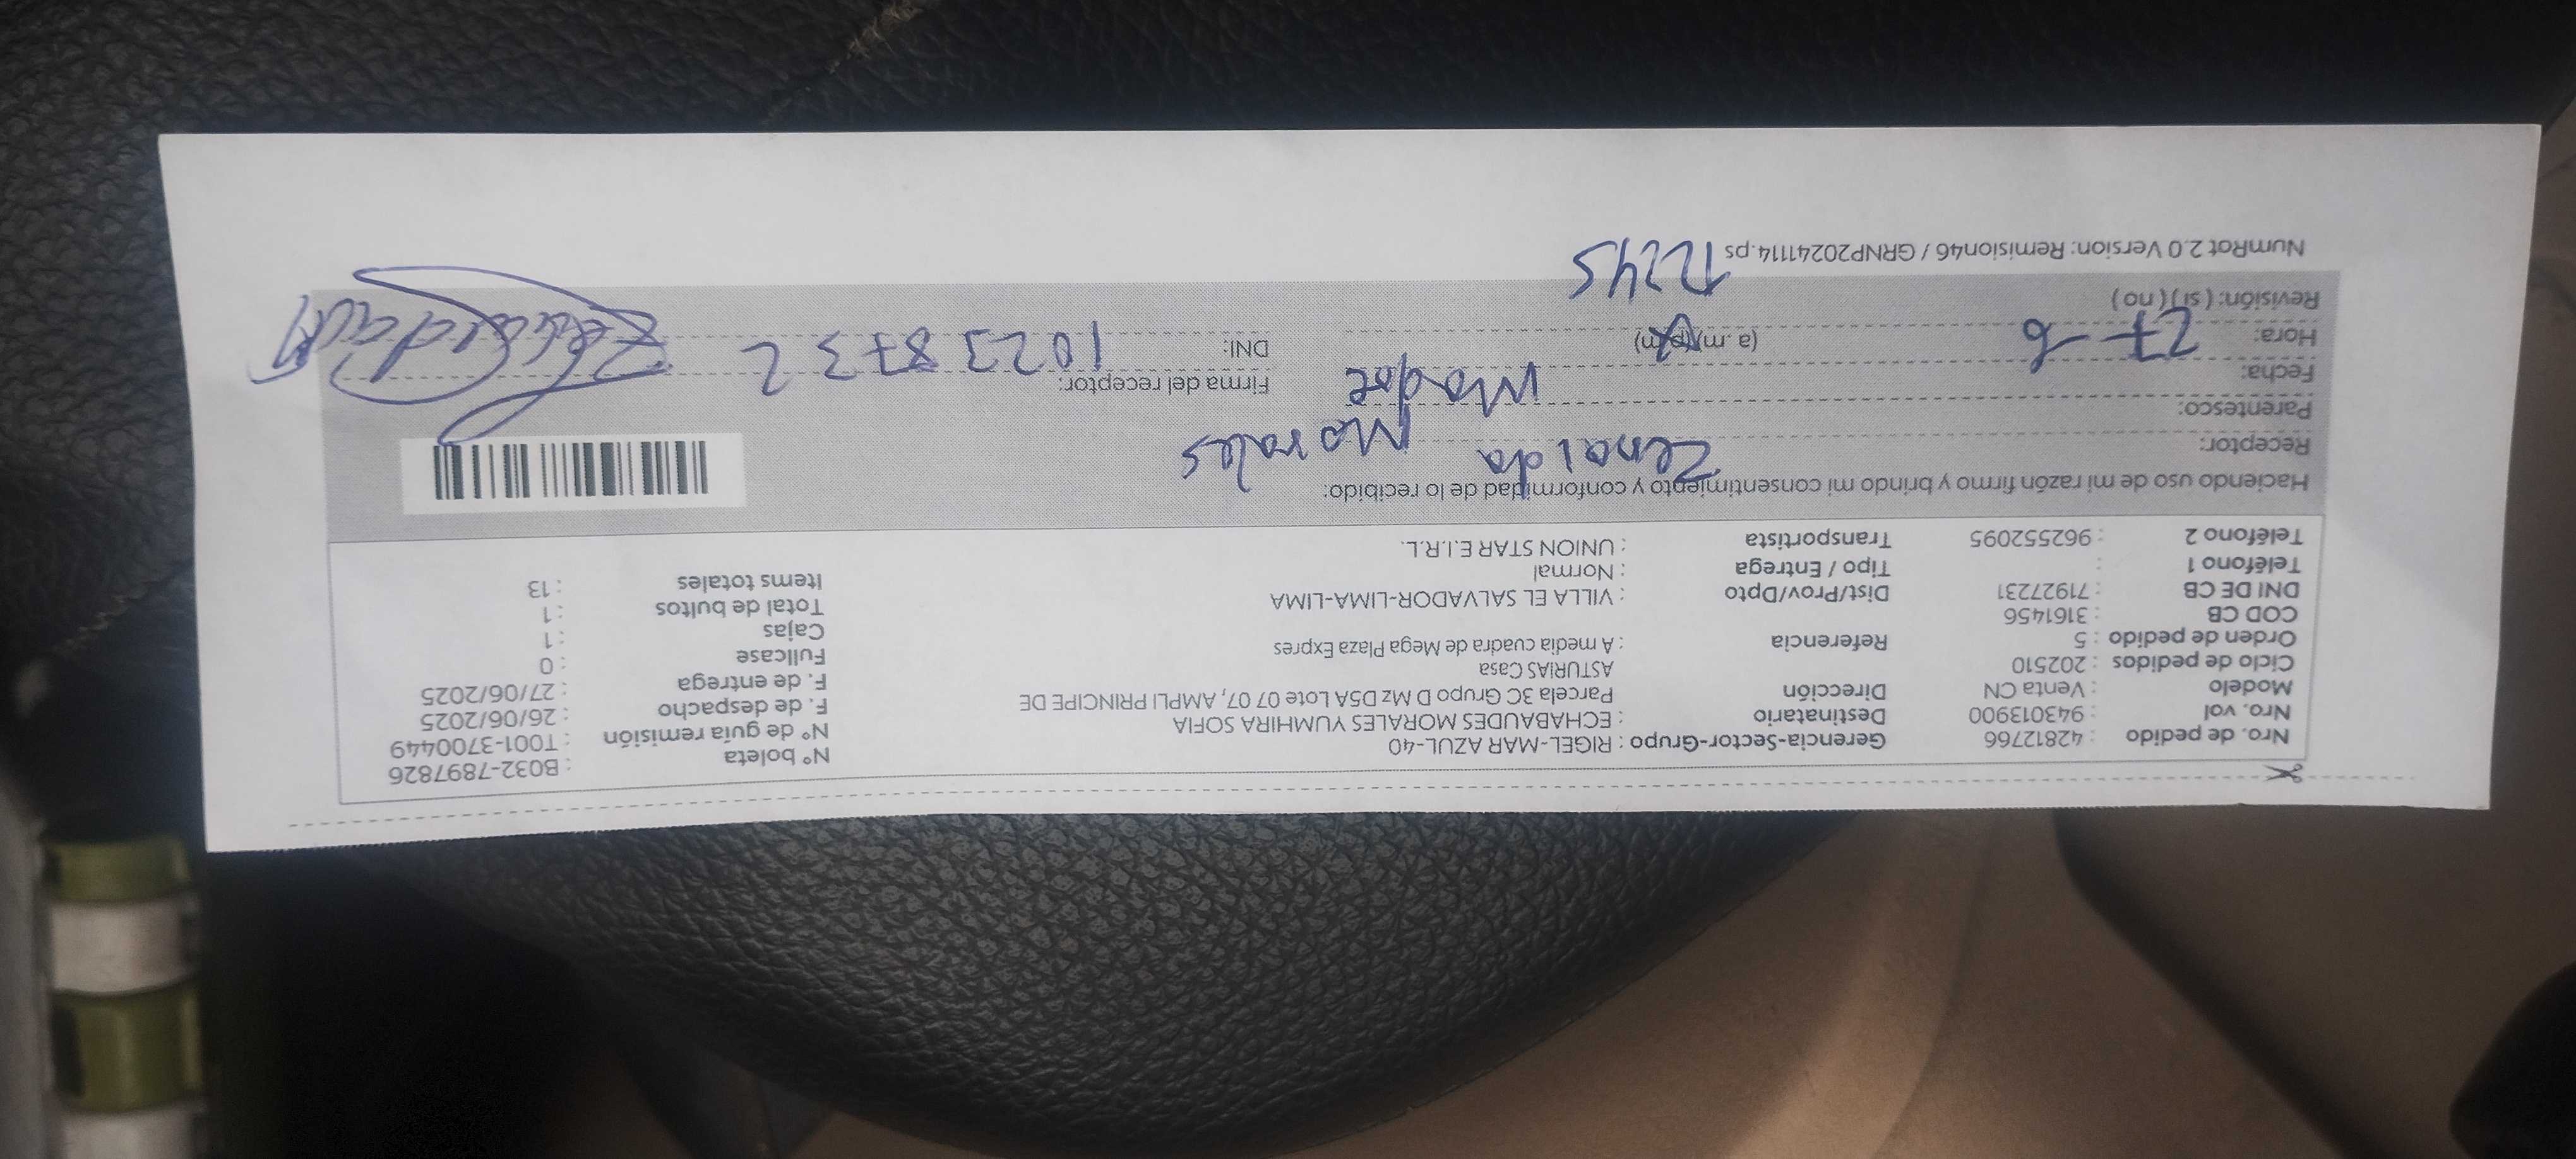 Nro. de pedido : 42812766 Gerencia-Sector-Grupo : RIGEL-MAR AZUL-40 N° boleta : B032-7897826
Nro. vol : 943013900 Destinatario : ECHABAUDES MORALES YUMHIRA SOFIA N° de guía remisión : T001-3700449
Modelo : Venta CN Dirección Parcela 3C Grupo D Mz D5A Lote 07 07, AMPLI PRINCIPE DE F. de despacho : 26/06/2025
Ciclo de pedidos : 202510 ASTURIAS Casa F. de entrega : 27/06/2025
Orden de pedido : 5 Referencia : A media cuadra de Mega Plaza Expres Fullcase : 0
COD CB : 3161456 Cajas : 1
DNI DE CB : 71927231 Dist/Prov/Dpto : VILLA EL SALVADOR-LIMA-LIMA Total de bultos : 1
Teléfono 1 : Tipo / Entrega : Normal Items totales : 13
Teléfono 2 : 962552095 Transportista : UNION STAR E.I.R.L.
Haciendo uso de mi razón firmo y brindo mi consentimiento y conformidad de lo recibido:
Receptor: Zenaida Morales
Parentesco: Madre
Fecha: 27-6 Firma del receptor:
Hora: (a.m)(p.m) DNI: 10238732
Revisión: ( si ) ( no ) 1224s
NumRot 2.0 Version: Remision46 / GRNP20241114.ps